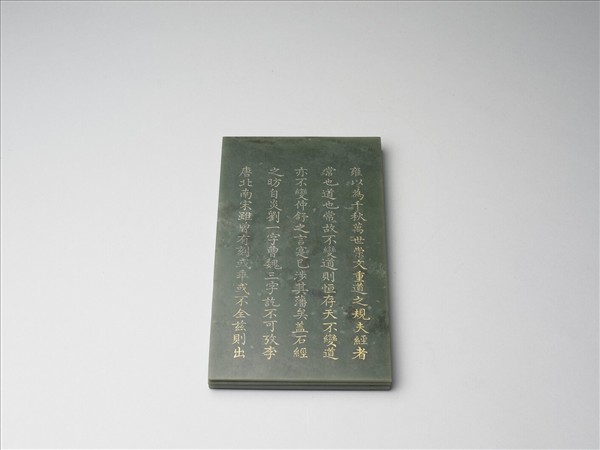 雍以為千秋萬世崇文重道之規夫經者
常也道也常故不變道則恒存天不變道
亦不變仲舒之言寔已涉其藩矣蓋石經
之昉自炎劉一字曹魏三字訖不可攷李
唐北南宋雖曾有刻或乖或不全茲則出